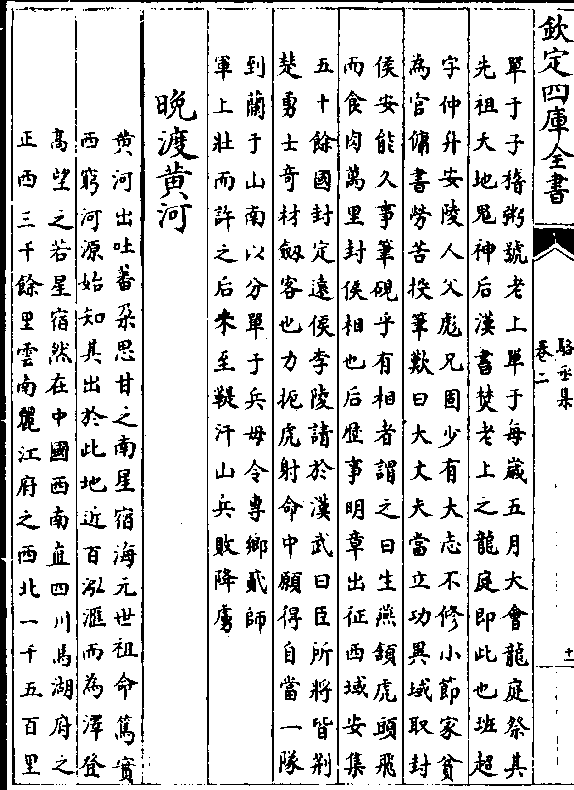 欽定四庫全書
駱丞集
卷二
十一
單于子稽粥號老上單于每歲五月大會龍庭祭其
先祖天地鬼神后漢書焚老上之龍庭即此也班超
字仲升安陵人父彪兄固少有大志不修小節家貧
為官傭書勞苦投筆歎曰大丈夫當立功異域取封
侯安能久事筆硯乎有相者謂之曰生燕頷虎頭飛
而食肉萬里封侯相也后歴事明章出征西域安集
五十餘國封定遠侯李陵請於漢武曰臣所將皆荆
楚勇士奇材劔客也力扼虎射命中願得自當一隊
到蘭于山南以分單于兵毋令專鄉貳師
軍上壯而許之后來至鞮汗山兵敗降虜
晚渡黄河
黄河出吐蕃朶思甘之南星宿海元世祖命篤實
西窮河源始知其出於此地近百泓滙而為澤登
髙望之若星宿然在中國西南直四川馬湖府之
正西三千餘里雲南麗江府之西北一千五百里